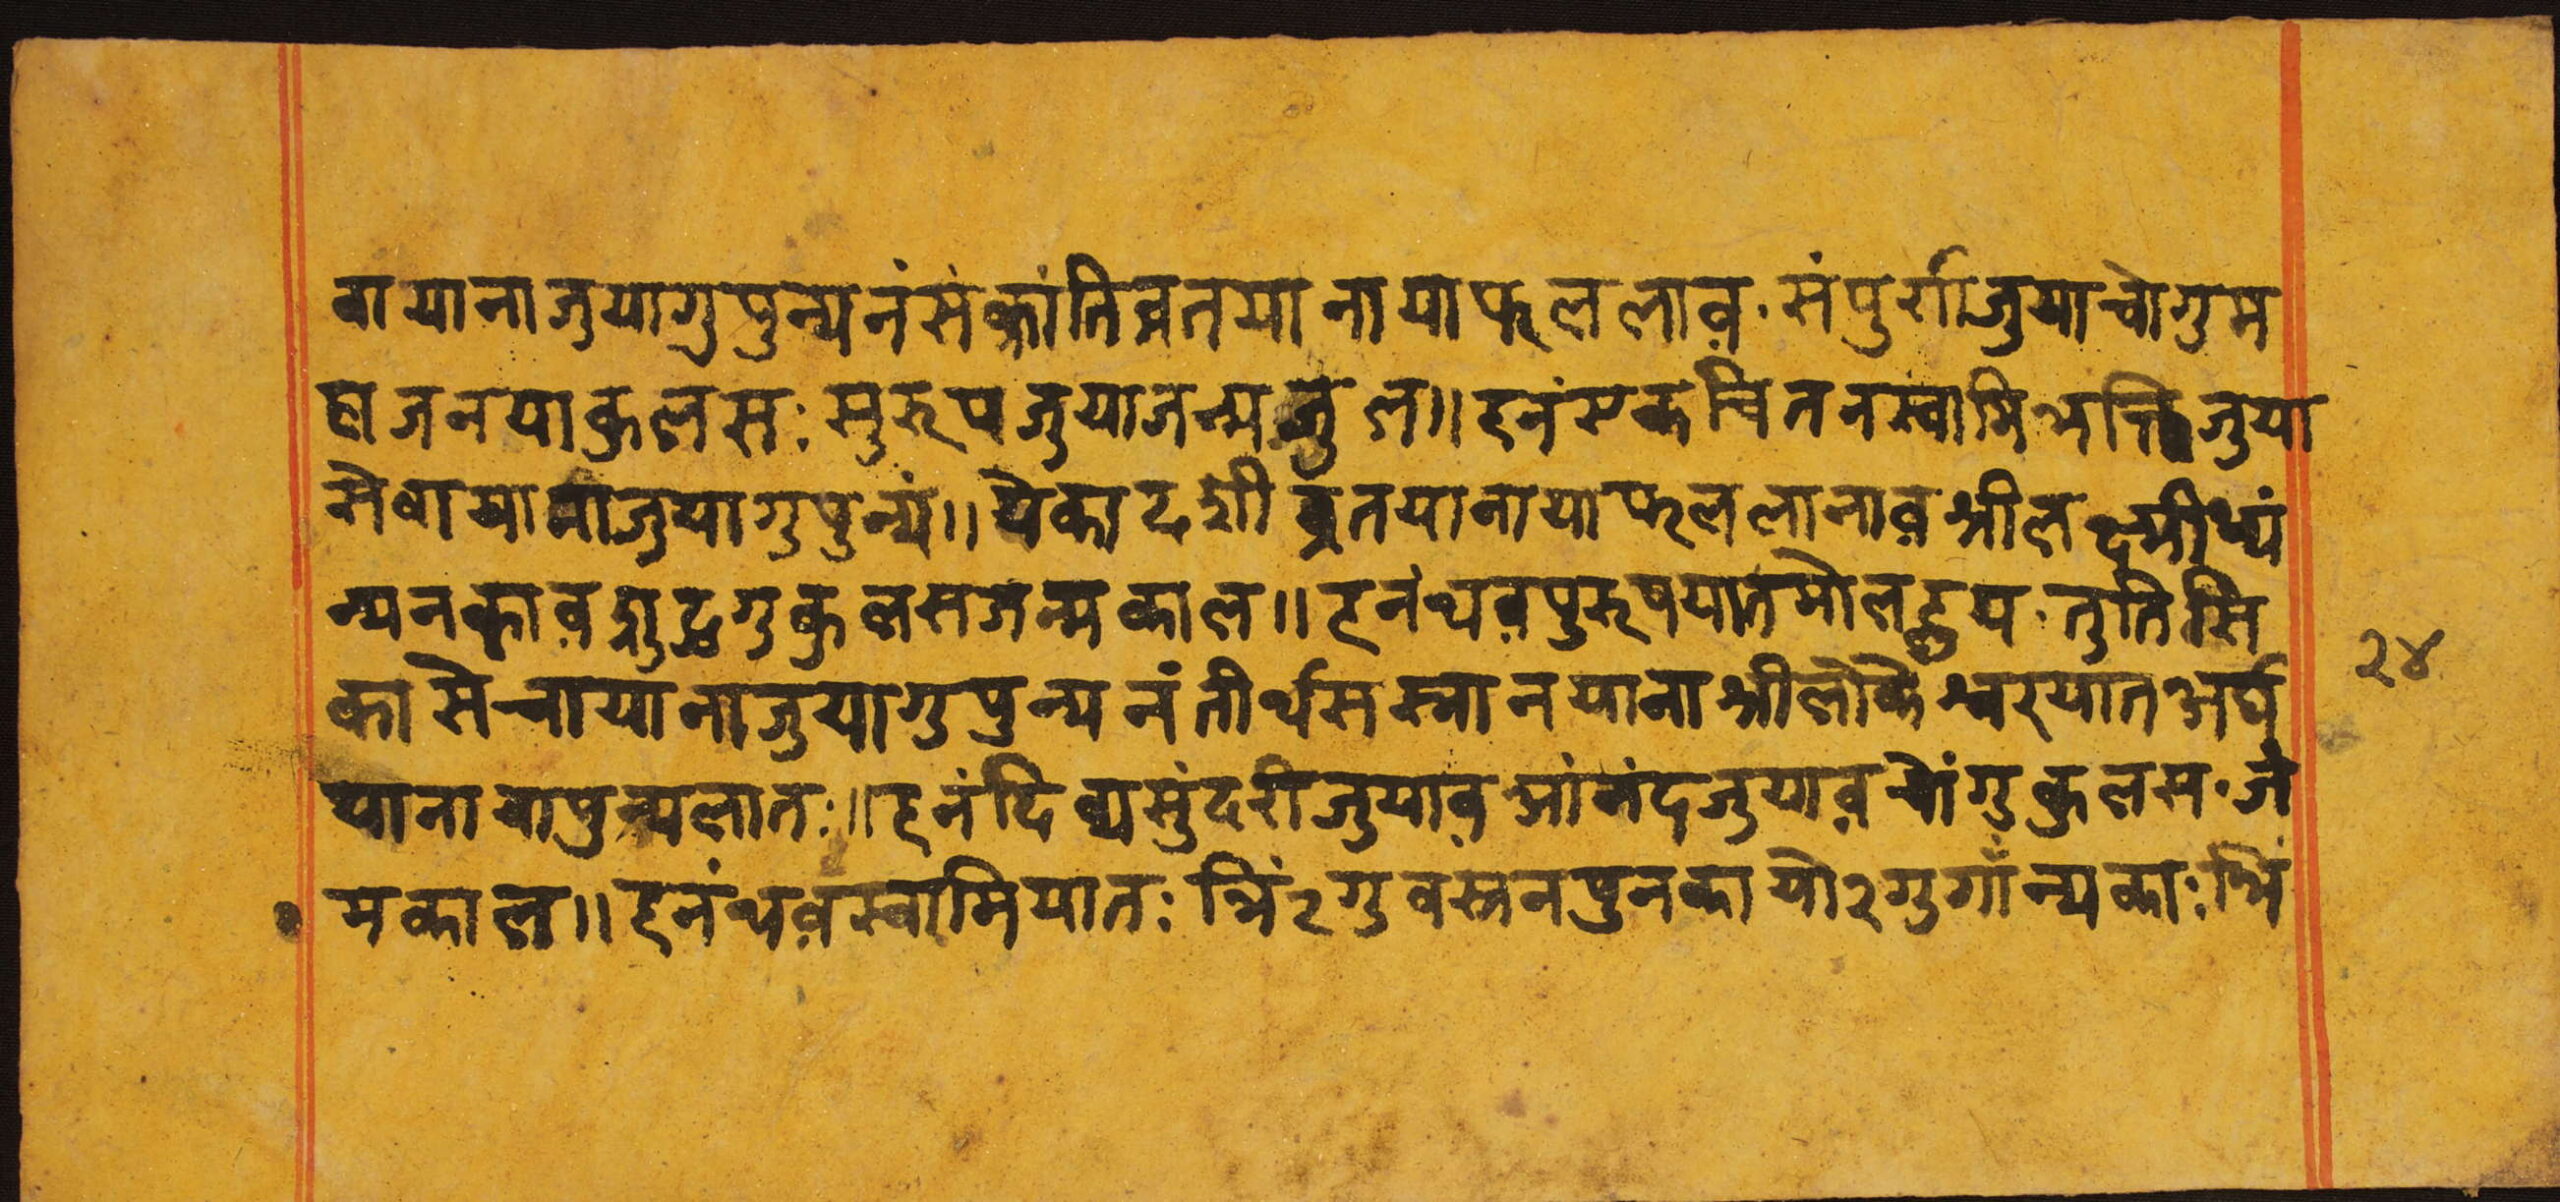 वायानाजुयागुपुन्यनंसंक्रांतिव्रतयानायाफललाव़.संपुर्णजुयाचोगुम
हाजनयाकुलस:सुरूपजुयाजन्मजुल॥हनंएकचितनस्वामिभक्तिजुया
सेवायानाजुयागुपुन्यं॥येकादशीव्रतयानायाफललानाव़श्रीलक्ष्मीथ्यं
न्यनकाव़शुद्धगुकुलसजन्मकाल॥हनंथव़पुरूषयातमोलह्लुय.तुतिसि
कासेचायानाजुयागुपुन्यनंतीर्थसस्नानयानाश्रीलोकेश्वरयातअर्घ
यानायापुन्यलात:॥हनंदिव्यसुंदरीजुयाव़आंनंदजुयाव़चोंगुकुलस.जं
मकाल॥हनंथव़स्वामियात:भिं२गुवस्तनपुनकायो२गुगांन्यका:भिं
२४